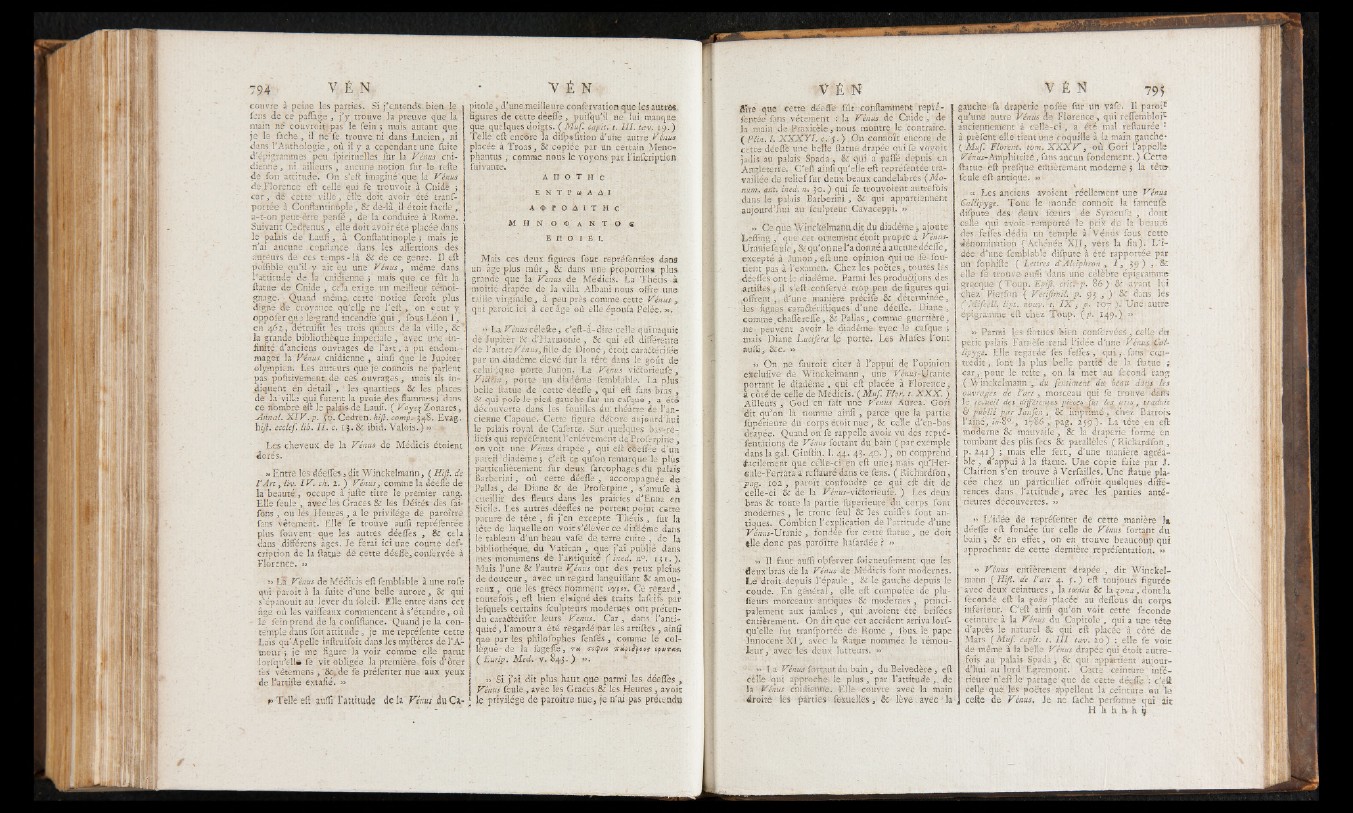 794 VÉN
VÉN
couvre à peine les parties. Si j'entends bien le
sens de ce passage, j'y trouve la preuve que la
main ne couvroit pas le sein; mais autant que
je le sache, il ne se trouve ni dans Lucien, ni
dans l'Anthologie, où il y a cependant une suite
d'épigrammes peu spirituelles sur la Vénus cni-
dienne, ni ailleurs, aucune notion sur le reste
de son attitude. On s'est imaginé que la Vénus
de Florence est celle qui se trouvoit à Cnide;
car, de cette ville, elle doit avoir été trans-
portée à Constantinople, & de-là il étoit facile,
a-t-on peut-être pensé, de la conduire à Rome.
Suivant Cedrenus, elle doit avoir été placée dans
le palais de Lausi, à Constantinople; mais je
n'ai aucune confiance dans les assertions des
auteurs de ces temps-là & de ce genre. Il est
possible qu'il y ait eu une Vénus, même dans
l'attitude de la cnidienne; mais que ce fût la
statue de Cnide, cela exige un meilleur témoi-
gnage. Quand même cette notice seroit plus
digne de croyance qu'elle ne l'est, on peut y
opposer que le grand incendie qui, sous Léon I,
en 462, détruisit les trois quarts de la ville, &
la grande bibliothèque impériale, avec une in-
finité d'anciens ouvrages de l'art, a pu endom-
mager la Vénus cnidienne, ainsi que le Jupiter
olympien. Les auteurs que je connois ne parlent
pas positivement de ces ouvrages, mais ils in-
diquent en détail, les quartiers & les places
de la ville qui furent la proie des flammes; dans
ce nombre est le palais de Lausi. (Voyez Zonares,
Annal. XIV. p. 50. Cedren. hist. comp. 348. Evag.
hist. eccles. lib. II. c. 13. & ibid. Valois.) »
Les cheveux de la Vénus de Médicis étoient
dorés.
» Entre les déesses, dit Winckelmann, (Hist. de
l'Art, liv. IV. ch. 2.) Vénus, comme la déesse de
la beauté, occupe à juste titre le premier rang.
Elle seule, avec les Graces & les Déités des sai-
sons, ou les Heures, a le privilége de paroître
sans vêtement. Elle se trouve aussi représentée
plus souvent que les autres déesses, & cela
dans différens ages. Je ferai ici une courte des-
cription de la statue de cette déesse, conservée à
Florence. »
» La Vénus de Médicis est semblable à une rose
qui paroît à la suite d'une belle aurore, & qui
s'épanouit au lever du soleil. Elle entre dans cet
âge où les vaisseaux commencent à s'étendre, où
le sein prend de la consistance. Quand je la con-
temple dans son attitude, je me représente cette
Laïs qu'Apelle instruisoit dans les mystères de l'A-
mour; je me figure la voir comme elle parut
lorsqu'elle se vit obligée la première fois d'ôter
ses vêtemens, & de se présenter nue aux yeux
de l'artiste extasié. »
» Telle est aussi l'attitude de la Vénus du Ca-
pitole, d'une meilleure conservation que les autres
figures de cette déesse, puisqu'il ne lui manque
que quelques doigts. (Mus. capit. t. III. tav. 19.)
Telle est encore la disposition d'une autre Vénus
placée à Troas, & copiée par un certain Meno-
phantus, comme nous le voyons par l'inscription
suivante.
ΑΠΟΤΗC
ΕΝΤΡωΑΔΙ
ΑΦΡΟΔΙΤΗC
ΜΗΝΟΦΑΝΤΟC
ΕΠΟΙΕΙ.
Mais ces deux figures sont représentées dans
un âge plus mûr, & dans une proportion plus
grande que la Vénus de Médicis. La Thétis à
moitié drapée de la villa Albani nous offre une
taille virginale, à peu près comme cette Vénus,
qui paroît ici à cet âge où elle épousa Pélée. ».
» La Vénus céleste, c'est-à-dire celle qui naquit
de Jupiter & d'Harmonie, & qui est différente
de l'autre Vénus, fille de Dioné, étoit caractérisée
par un diadème élevé sur la tête dans le goût de
celui que porte Junon. La Vénus victorieuse,
Victrix, porte un diadème semblable. La plus
belle statue de cette déesse, qui est sans bras,
& qui pose le pied gauche sur un casque, a été
découverte dans les fouilles du théatre de l'an-
cienne Capoue. Cette figure décore aujourd'hui
le palais royal de Caserte. Sur quelques bas-re-
liefs qui représentent l'enlèvement de Proserpine,
on voit une Vénus drapée, qui est coeffée d'un
pareil diadème; c'est ce qu'on remarque le plus
particulièrement sur deux sarcophages du palais
Barberini, où cette déesse, accompagnée de
Pallas, de Diane & de Proserpine, s'amuse à
cueillir des fleurs dans les prairies d'Enna en
Sicile. Les autres déesses ne portent point cette
parure de tête, si j'en excepte Thétis, sur la
tête de laquelle on voit s'élever ce diadème dans
le tableau d'un beau vase de terre cuite, de la
bibliothèque du Vatican, que j'ai publié dans
mes monumens de l'antiquité (ined. n°. 131.).
Mais l'une & l'autre Vénus ont des yeux pleins
de douceur, avec un regard languissant & amou-
reux, que les grecs nomment υγρον. Ce regard,
toutefois, est bien éloigné des traits lascifs par
lesquels certains sculpteurs modernes ont préten-
du caractériser leurs Vénus. Car, dans l'anti-
quité, l'amour a été regardé par les artistes, ainsi
que par les philosophes sensés, comme le col-
lègue de la sagesse,
(Eurip. Med. v. 843.) ».
» Si j'ai dit plus haut que parmi les déesses,
Vénus seule, avec les Graces & les Heures, avoit
le privilége de paroître nue, je n'ai pas prétendu
VÉN
VÉN 795
dire que cette déesse fût constamment repré-
sentée sans vêtement: la Vénus de Cnide, de
la main de Praxitèle, nous montre le contraire.
(Plin. l. XXXVI. c. 5.) On connoît encore de
cette déesse une belle statue drapée qui se voyoit
jadis au palais Spada, & qui a passé depuis en
Angleterre. C'est ainsi qu'elle est représentée tra-
vaillée de relief sur deux beaux candelabres (Mo-
num. ant. ined. n. 30.) qui se trouvoient autrefois
dans le palais Barberini, & qui appartiennent
aujourd'hui au sculpteur Cavaceppi. »
» Ce que Winckelmann dit du diadème, ajoute
Lessing, que cet ornement étoit propre à Vénus-
Uranie seule, & qu'on ne l'a donné à aucune déesse,
excepté à Junon, est une opinion qui ne se sou-
tient pas à l'examen. Chez les poëtes, toutes les
déesses ont le diadème. Parmi les productions des
artistes, il s'est conservé trop peu de figures qui
offrent, d'une manière précise & déterminée,
les signes caractéristiques d'une déesse. Diane,
comme chasseresse, & Pallas, comme guerrière,
ne peuvent avoir le diadème avec le casque;
mais Diane Lucifera le porte. Les Muses l'ont
aussi, &c. »
» On ne sauroit citer à l'appui de l'opinion
exclusive de Winckelmann, une Vénus-Uranie
portant le diadème, qui est placée à Florence,
à côté de celle de Médicis. (Mus. Flor. t. XXX.)
Ailleurs, Gori en fait une Vénus Aurea. Gori
dit qu'on la nomme ainsi, parce que la partie
supérieure du corps étoit nue, & celle d'en-bas
drapée. Quand on se rappelle avoir vu des repré-
sentations de Vénus sortant du bain (par exemple
dans la gal. Giustin. I. 44. 43. 40.), on comprend
facilement que celle-ci en est une; mais qu'Her-
cule-Ferrata a restauré dans ce sens. (Richardson,
pag. 102, paroît confondre ce qui est dit de
celle-ci & de la Vénus-victorieuse.) Les deux
bras & toute la partie supérieure du corps sont
modernes, le tronc seul & les cuisses sont an-
tiques. Combien l'explication de l'attitude d'une
Vénus-Uranie, fondée sur cette statue, ne doit
elle donc pas paroître hasardée? »
» Il faut aussi observer soigneusement que les
deux bras de la Vénus de Médicis sont modernes.
Le droit depuis l'épaule, & le gauche depuis le
coude. En général, elle est composée de plu-
sieurs morceaux antiques & modernes, princi-
palement aux jambes, qui avoient été brisées
entièrement. On dit que cet accident arriva lors-
qu'elle fut transportée de Rome, sous le pape
Innocent XI, avec la statue nommée le rémou-
leur, avec les deux lutteurs. »
» La Vénus sortant du bain, du Belvedère, est
celle qui approche le plus, par l'attitude, de
la Vénus cnidienne. Elle couvre avec la main
droite les parties sexuelles, & lève avec la
gauche sa draperie posée sur un vase. Il paroît
qu'une autre Vénus de Florence, qui ressembloit
anciennement à celle-ci, a été mal restaurée:
à présent elle tient une coquille à la main gauche.
(Mus. Florent. tom. XXXV, où Gori l'appelle
Vénus-Amphitrite, sans aucun fondement.) Cette
statue est presque entièrement moderne; la tête
seule est antique. »
» Les anciens avoient réellement une Vénus
Callipyge. Tout le monde connoît la fameuse
dispute des deux sœurs de Syracuse, dont
celle qui avoit remporté le prix de la beauté
des fesses dédia un temple à Vénus sous cette
dénomination (Athénée XII, vers la fin). L'i-
dée d'une semblable dispute a été rapportée par
un sophiste (Lettres d'Alciphron, I, 39), &
elle se trouve aussi dans une célèbre épigramme
grecque (Toup. Emst. crit. p. 86) & avant lui
chez Pierson (Verisimil. p. 93,) & dans les
(Miscell. Lips. nova. t. IX, p. 107). Une autre
épigramme est chez Toup. (p. 149.) »
» Parmi les statues bien conservées, celle du
petit palais Farnèse rend l'idée d'une Vénus Cal-
lipyge. Elle regarde ses fesses, qui, sans con-
tredit, sont la plus belle partie de la statue;
car, pour le reste, on la met au second rang
(Winckelmann, du sentiment du beau dans les
ouvrages de l'art, morceau qui se trouve dans
le recueil des différentes pièces sur les arts, traduit
& publié par Jansen, & imprimé, chez Barrois
l'aîné, in-8°, 1786, pag. 259). La tête en est
moderne & mauvaise, & la draperie forme en
tombant des plis secs & parallèles (Richardson,
p. 241); mais elle sert, d'une manière agréa-
ble, d'appui à la statue. Une copie faite par J.
Clarion s'en trouve à Versailles. Une statue pla-
cée chez un particulier offroit quelques diffé-
rences dans l'attitude, avec les parties anté-
rieures découvertes. »
» L'idée de représenter de cette manière la
déesse est fondée sur celle de Vénus sortant du
bain; & en effet, on en trouve beaucoup qui
approchent de cette dernière représentation. »
» Vénus entièrement drapée, dit Winckel-
mann (Hist. de l'art 4. 5.) est toujours figurée
avec deux ceintures, la taenia & la zona, dont la
seconde est la zona placée au dessous du corps
inférieur. C'est ainsi qu'on voit cette seconde
ceinture à la Vénus du Capitole, qui a une tête
d'après le naturel & qui est placée à côté de
Mars (Mus. capit. t. III tav. 20): elle se voit
de même à la belle Vénus drapée qui étoit autre-
fois au palais Spada, & qui appartient aujour-
d'hui au lord Egremont. Cette ceinture infé-
rieure n'est le partage que de cette déesse: c'est
celle que les poëtes appellent la ceinture ou le
ceste de Vénus. Je ne sache personne qui ait
H h h h h ij